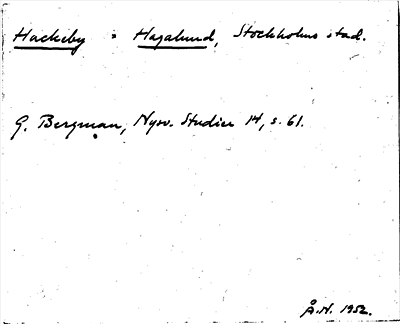 Hackeby = Hagalund, Stockholms stad.
G. Bergman, Nysv. Studier 14, s. 61.
Å.N. 1952.